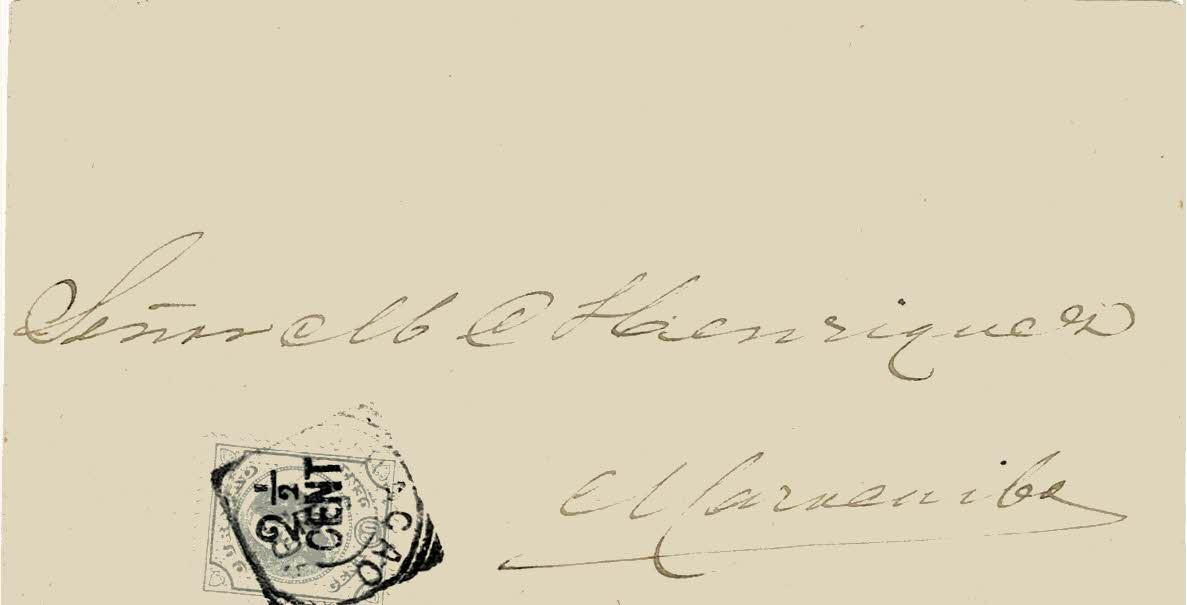 Señor M C Henriquez
Maracaibo
2½
CENT
ACAO